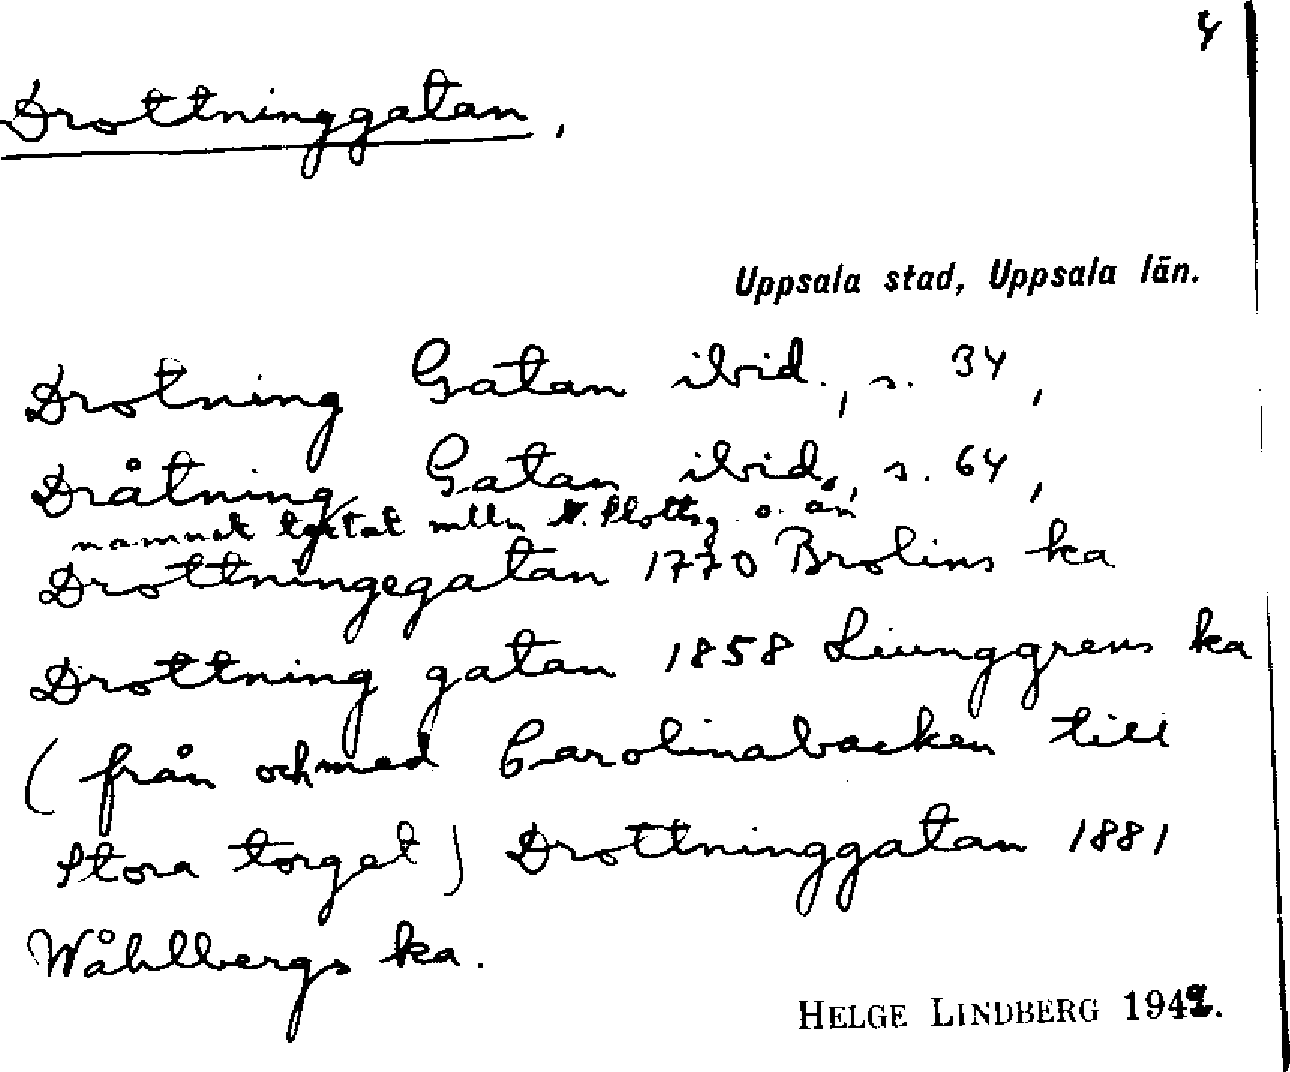 4
Drottninggatan,
Uppsala stad, Uppsala län.
Drotning Gatan ibid., s. 34,
Dråtning Gatan ibid., s. 64,
namnet mlln N. Slottsg. o. ån
Drottningegatan 1770 Brolins ka
Drottning gatan 1858 Liunggrens ka
(från ochmed Carolinabacken till
Stora torget) Drottninggatan 1881
Wåhlbergs ka.
HELGE LINDBERG 1942.